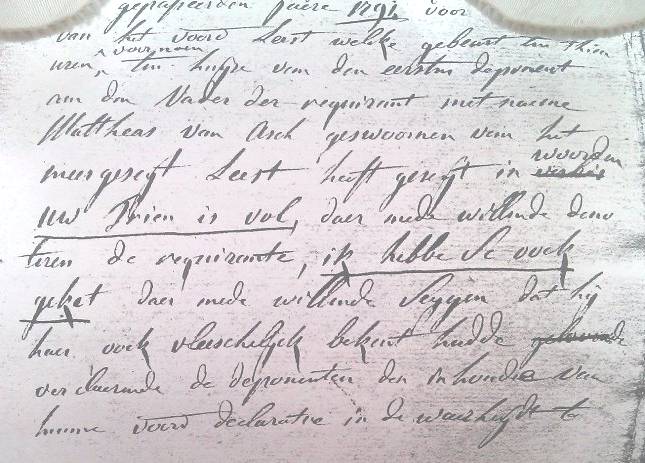 gepasseerden jaere 1791 voor
van het voord Leest welke gebeurt ten thien
uren, voornoen ten huyse van den eersten deponent
aan den Vader der requirant met naeme
Mattheas van Asch geswoornen van het
meergesegt Leest heeft gesegt in woorden
uw Trien is vol, daer mede willende deno
teren de requirante, ik hebbe se oock
geket daer mede willende seggen dat hij
haer oock vleeschelijck bekent hadde
verclaerende de deponenten den inhoude van
hunne voors declaratie in de waerheyde te